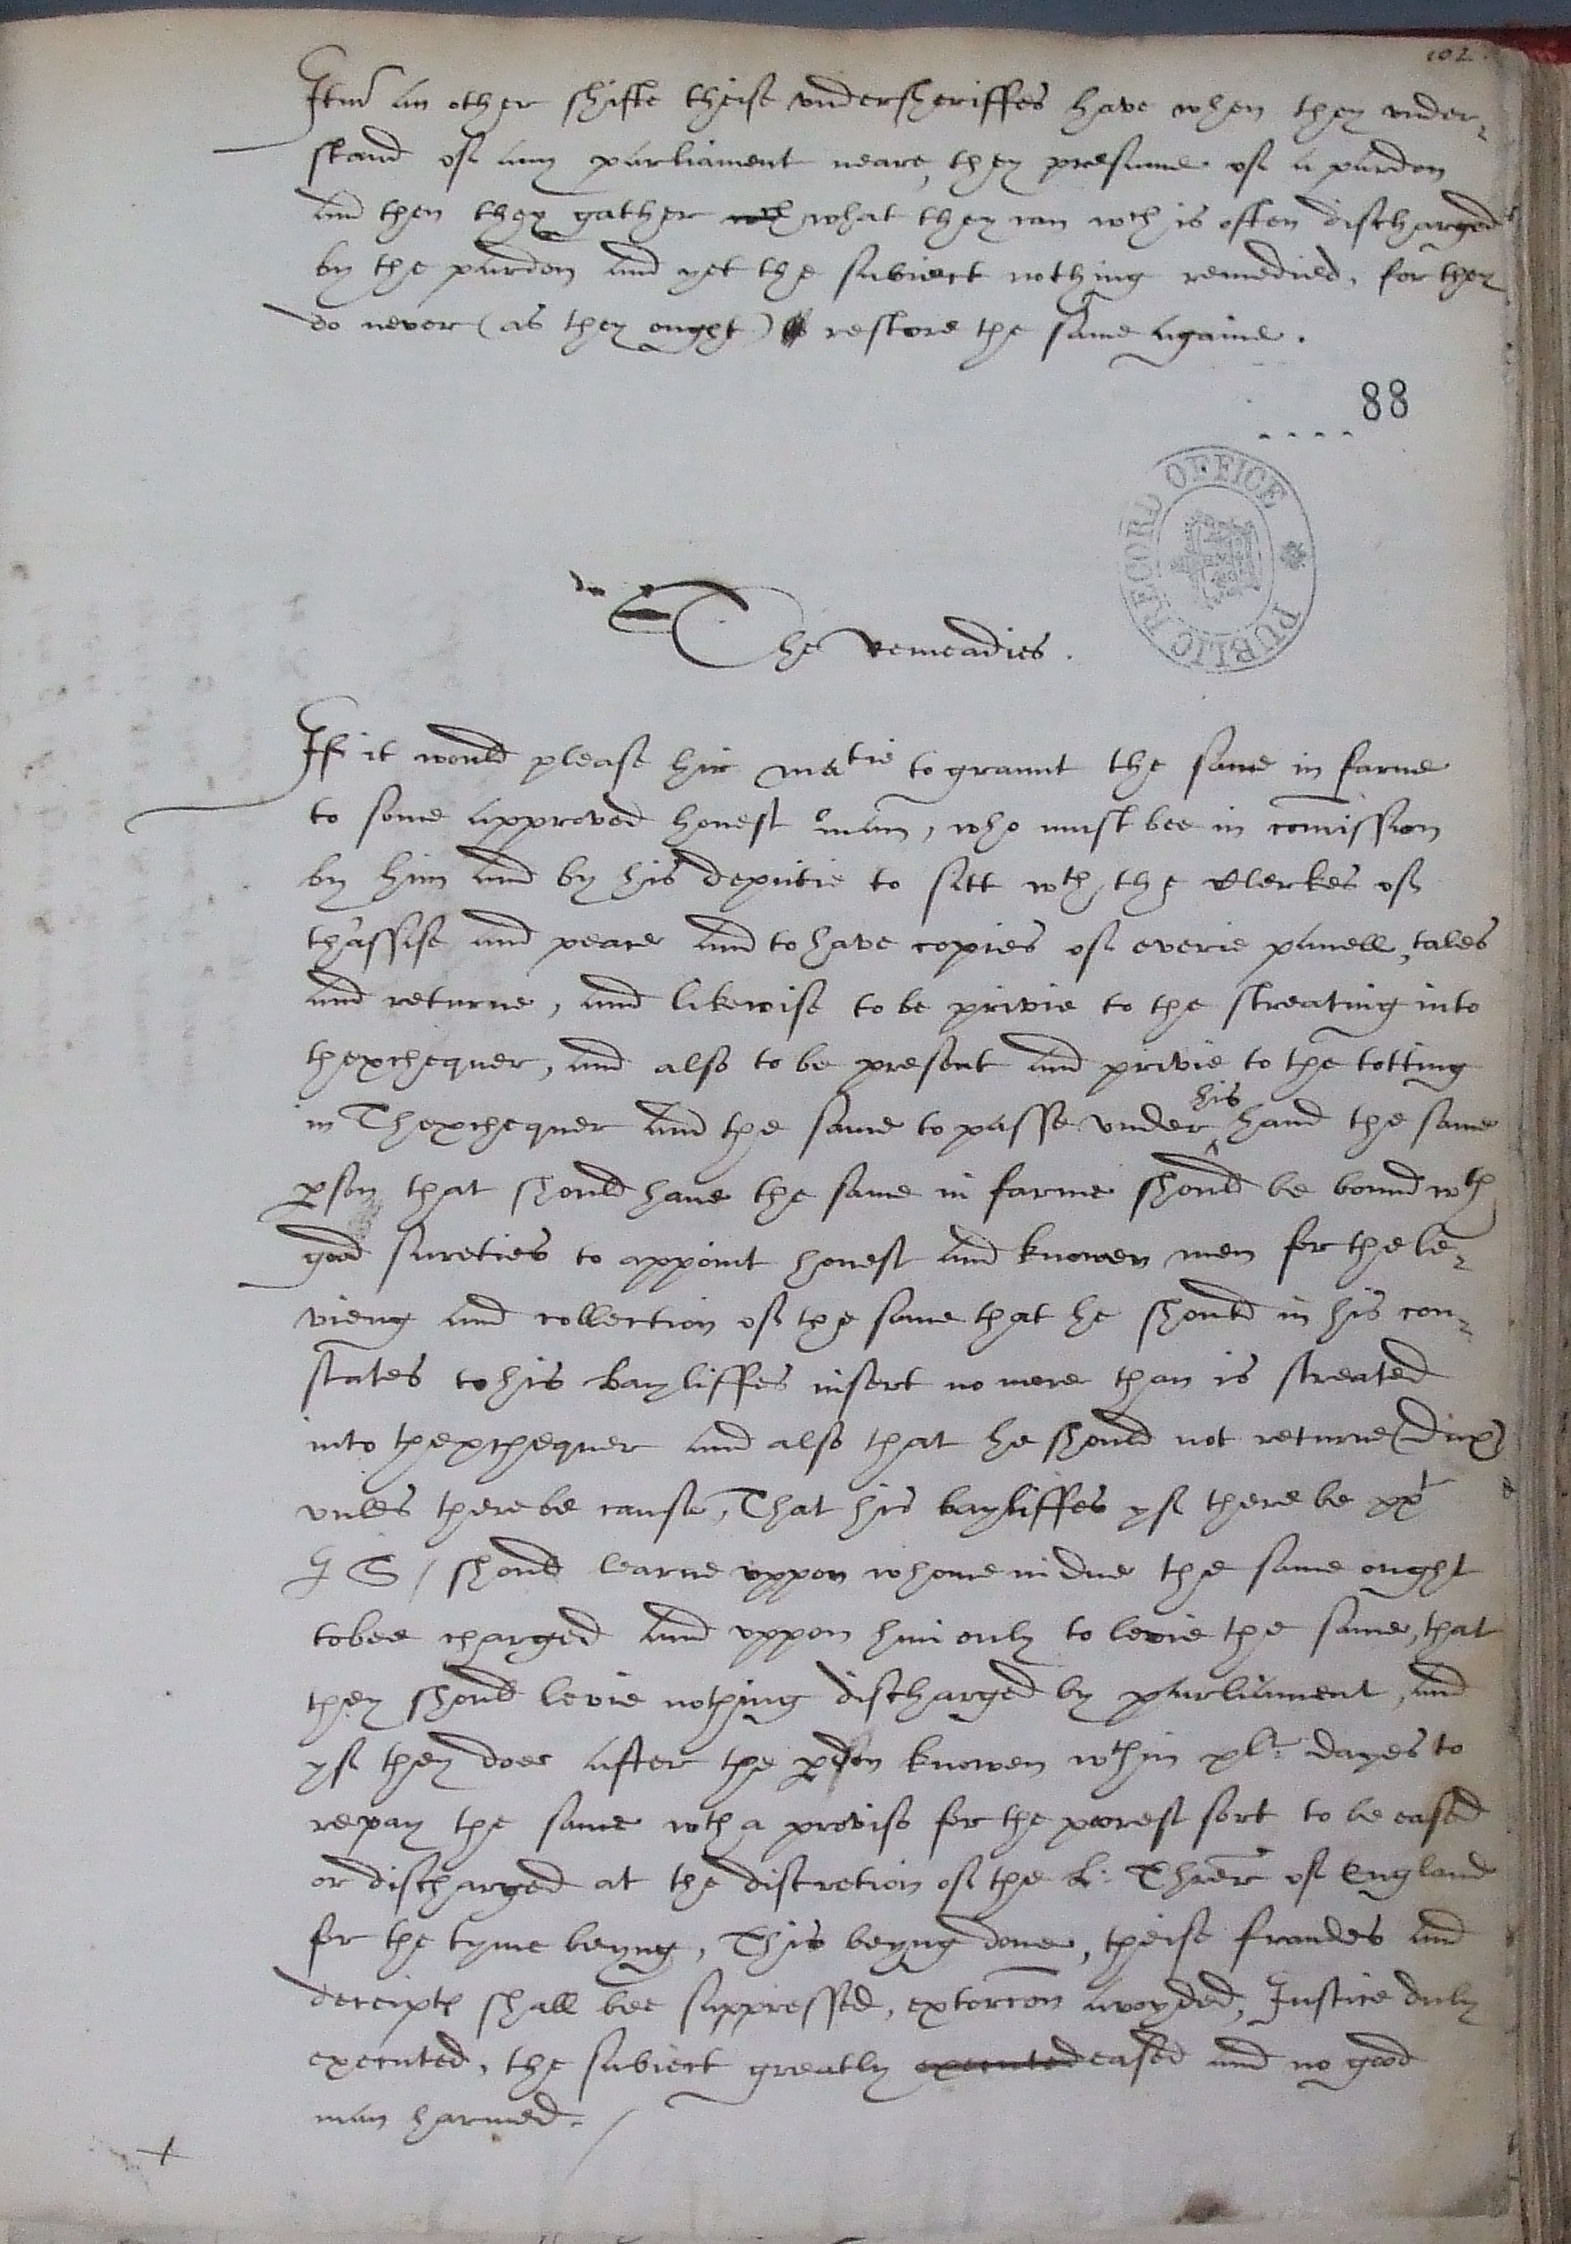 102.
Itm an other shifte theise vndersheriffes have when they vnder-
stand of any parliament neare, they presume of a pardon
and then they gather wch what they can wch is often discharged
by the pardon and yet the subiect nothing remedied, for they
do never (as they ought) restore the same againe.
88
PUBLIC RECORD OFFICE
The remeadies.
If it would please hir matie to graunt the same in farme
to some approved honest man, who must bee in comission
by him and by his deputie to sitt wth the Clerkes of
thassise and peace and to have copies of everie panell, tales
and returne, and likewise to be privie to the streating into
thexchequer, and also to be present and privie to the totting
in Thexchequer and the same to passe vnder his hand the same
pson that should have the same in farme should be bound wth
good sureties to appoint honest and knowen men for the le-
vieng and collection of the same that he should in his con-
states to his Bayliffes insert no more than is streated
into thexchequer and also that he should not returne
vnles there be cause, That his bayliffes yf there be xxti
I S / should learne vppon whome in due the same ought
to bee charged and vppon him only to levie the same, that
they should levie nothing discharged by parliament, and
yf they doe after the pdon knowen wthin xltie dayes to
repay the same wth a proviso for the poorest sort to be eased
or discharged at the discretion of the L: Threr of England
for the tyme beyng, This beyng done, theise fraudes and
deceipts shall bee suppressed, extorcon avoyded, Justice duly
executed, the subiect greatly executed eased and no good
man harmed. /